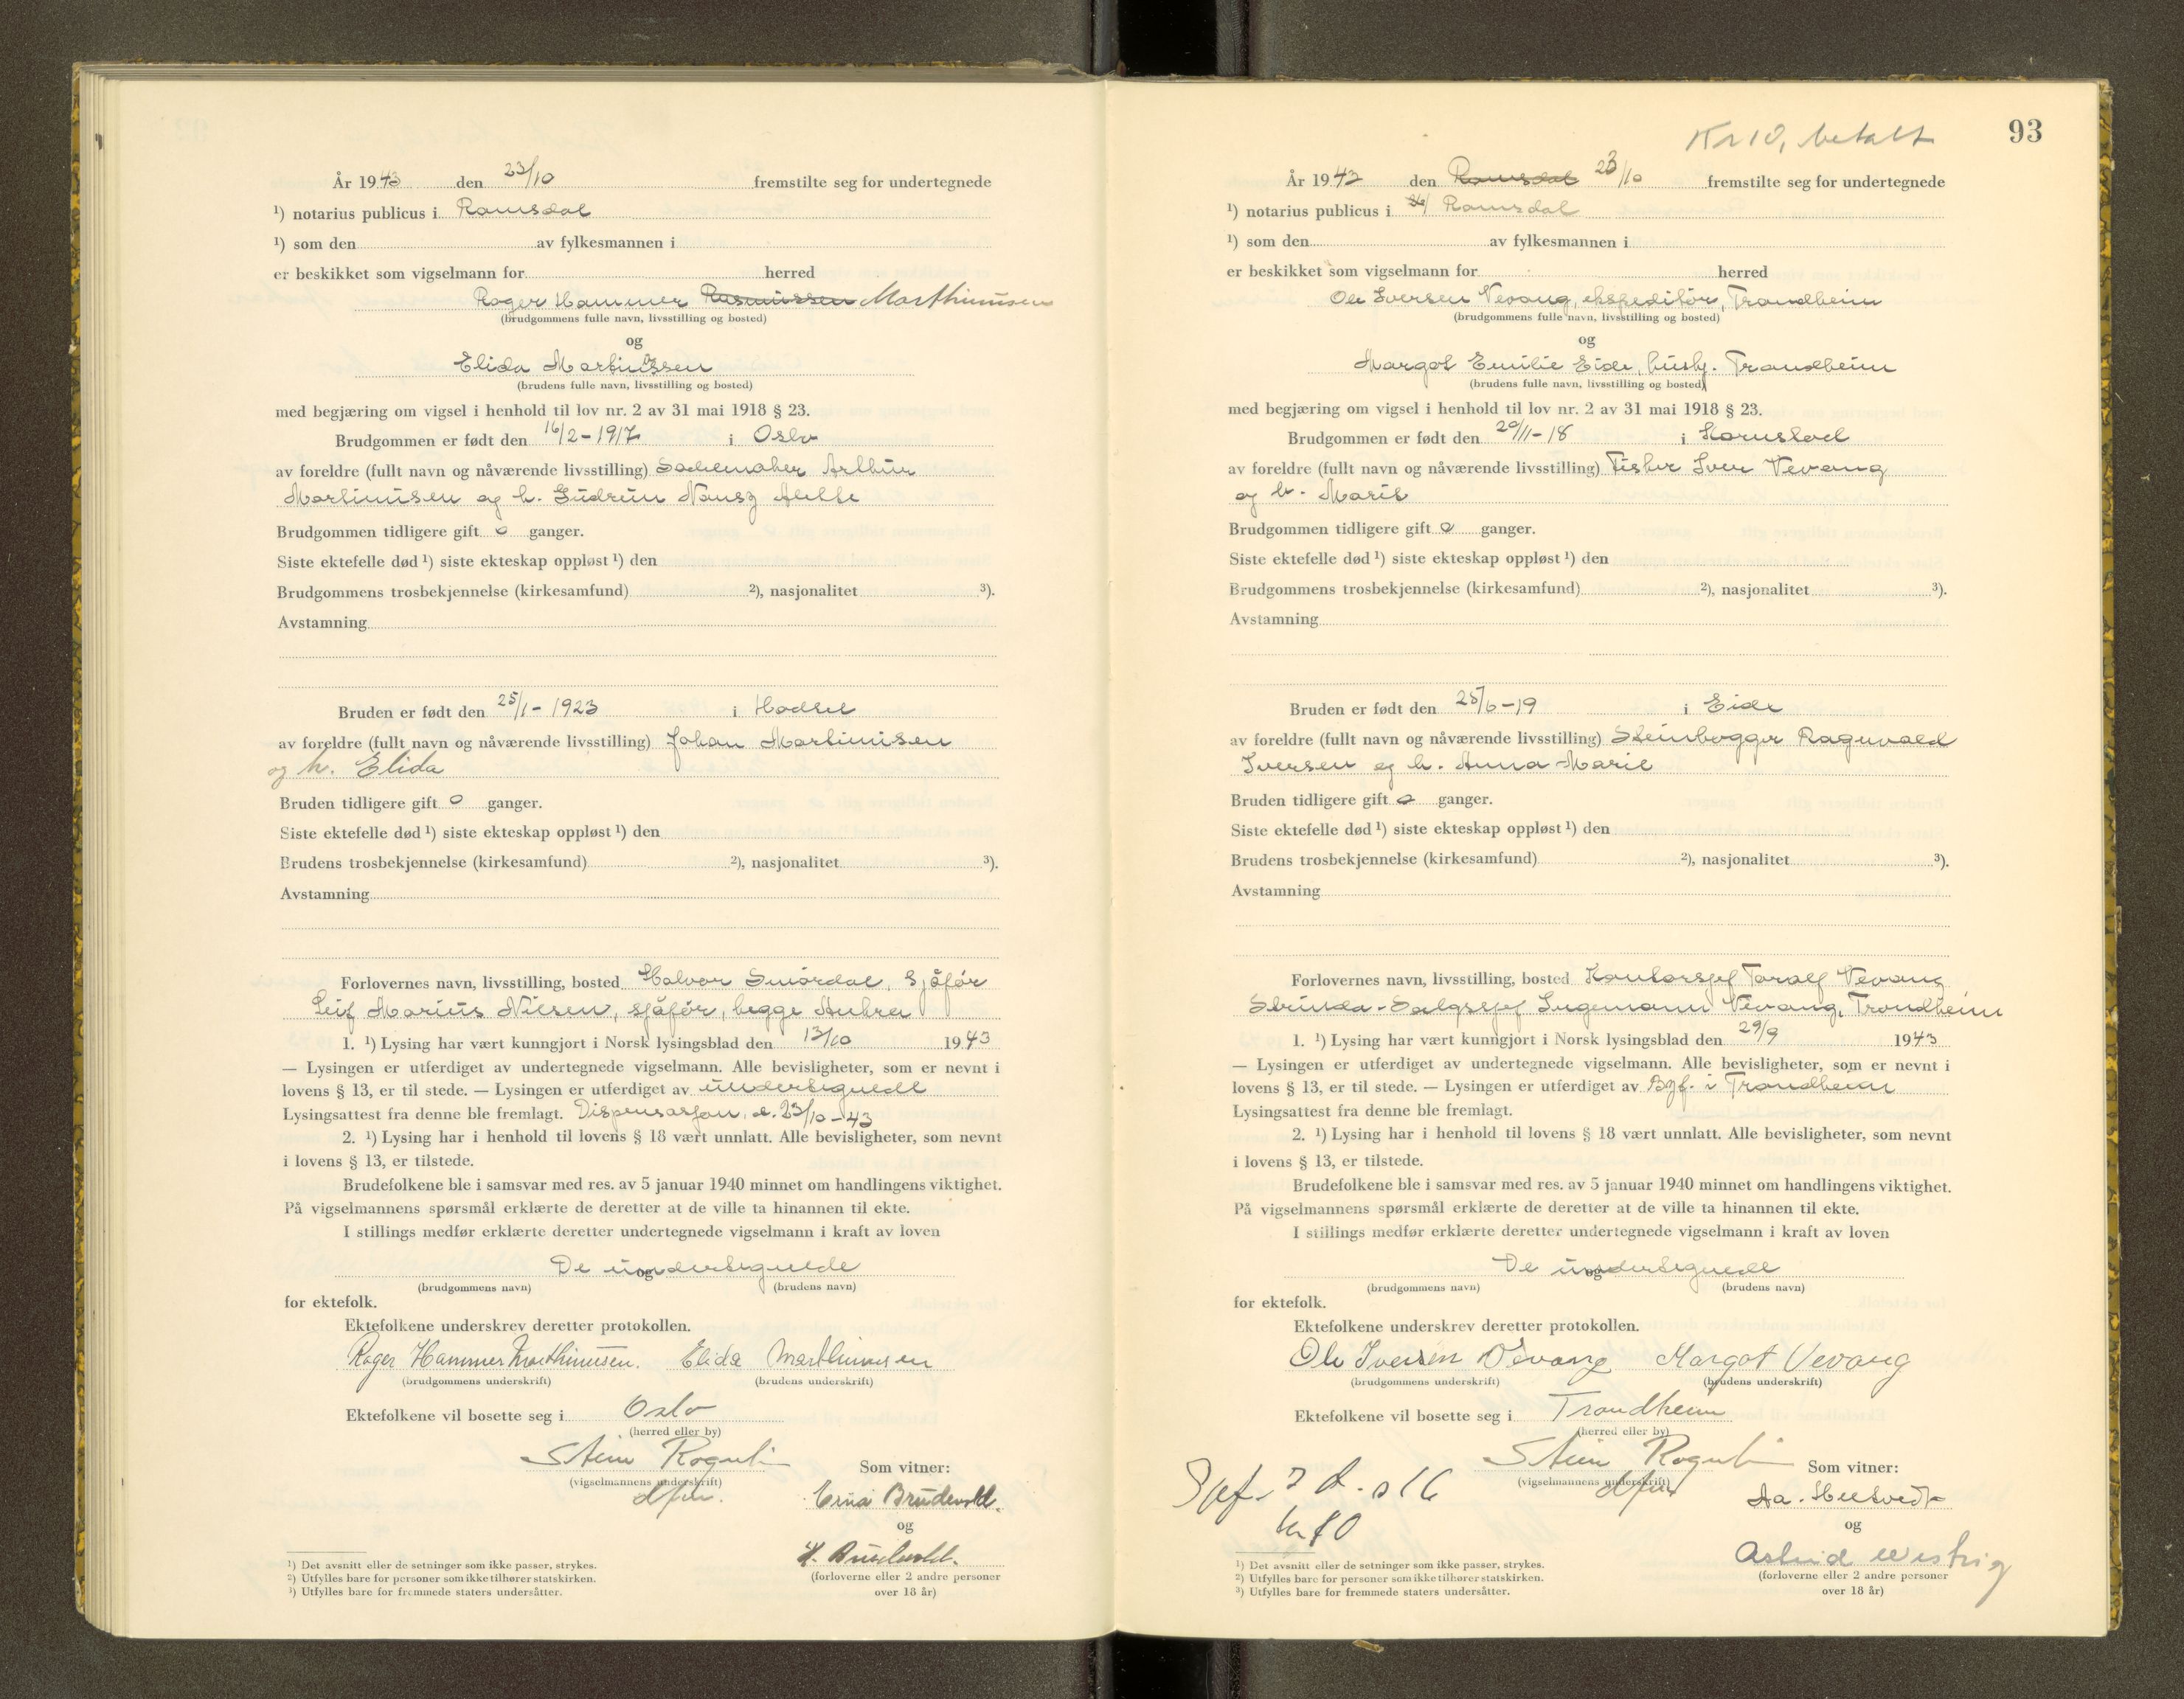 År 1943 den 23/10 fremstilte seg for undertegnede
¹) notarius publicus i Romsdal
¹) som den av fylkesmannen i
er beskikket som vigselmann for herred
Roger Hammer Rasmussen Marthinussen
(brudgommens fulle navn, livsstilling og bosted)
og
Elida Martinussen
(brudens fulle navn, livsstilling og bosted)
med begjæring om vigsel i henhold til lov nr. 2 av 31 mai 1918 § 23.
Brudgommen er født den 16/2-1917 i Oslo
av foreldre (fullt navn og nåværende livsstilling) Arthur
Martinusen og h. Gudrun
Brudgommen tidligere gift 0 ganger.
Siste ektefelle død ¹) siste ekteskap oppløst ¹) den
Brudgommens trosbekjennelse (kirkesamfund) ²), nasjonalitet ³).
Avstamning
Bruden er født den 25/1-1923 i Hadsel
av foreldre (fullt navn og nåværende livsstilling) Johan Martinusen
og h. Elida
Bruden tidligere gift 0 ganger.
Siste ektefelle død ¹) siste ekteskap oppløst ¹) den
Brudens trosbekjennelse (kirkesamfund) ²), nasjonalitet ³).
Avstamning
Forlovernes navn, livsstilling, bosted Halvor Snørdal, sjåfør
Leif Marius Nilsen, sjåfør, begge Aukra
1. ¹) Lysing har vært kunngjort i Norsk lysingsblad den 13/10 1943
— Lysingen er utferdiget av undertegnede vigselmann. Alle bevisligheter, som er nevnt i
lovens § 13, er til stede. — Lysingen er utferdiget av undertegnede
Lysingsattest fra denne ble fremlagt. Dispensasjon d. 23/10-43
2. ¹) Lysing har i henhold til lovens § 18 vært unnlatt. Alle bevisligheter, som nevnt
i lovens § 13, er tilstede.
Brudefolkene ble i samsvar med res. av 5 januar 1940 minnet om handlingens viktighet.
På vigselmannens spørsmål erklærte de deretter at de ville ta hinannen til ekte.
I stillings medfør erklærte deretter undertegnede vigselmann i kraft av loven
De undertegnede
og
(brudgommens navn) (brudens navn)
for ektefolk.
Ektefolkene underskrev deretter protokollen.
Roger Hammer Marthinussen. Elida Marthinussen
(brudgommens underskrift) (brudens underskrift)
Ektefolkene vil bosette seg i Oslo
(herred eller by)
Stein Rognli
(vigselmannens underskrift)
dfm.
Som vitner:
Erna Brudevold.
og
H. Brudevold.
(forloverne eller 2 andre personer
over 18 år)
¹) Det avsnitt eller de setninger som ikke passer, strykes.
²) Utfylles bare for personer som ikke tilhører statskirken.
³) Utfylles bare for fremmede staters undersåtter.
93
Kr 10, betalt
År 1943 den Romsdal 23/10 fremstilte seg for undertegnede
¹) notarius publicus i Romsdal
¹) som den av fylkesmannen i
er beskikket som vigselmann for herred
Ole Iversen Vevang, ekspeditør, Trondheim
(brudgommens fulle navn, livsstilling og bosted)
og
Margot Emilie Eide, husb. Trondheim
(brudens fulle navn, livsstilling og bosted)
med begjæring om vigsel i henhold til lov nr. 2 av 31 mai 1918 § 23.
Brudgommen er født den 20/11-18 i Kornstad
av foreldre (fullt navn og nåværende livsstilling) Fisker Iver Vevang
og h. Marit
Brudgommen tidligere gift 0 ganger.
Siste ektefelle død ¹) siste ekteskap oppløst ¹) den
Brudgommens trosbekjennelse (kirkesamfund) ²), nasjonalitet ³).
Avstamning
Bruden er født den 25/6-19 i Eide
av foreldre (fullt navn og nåværende livsstilling) Steinhogger Ragnvald
Iversen og h. Anna Marie
Bruden tidligere gift 0 ganger.
Siste ektefelle død ¹) siste ekteskap oppløst ¹) den
Brudens trosbekjennelse (kirkesamfund) ²), nasjonalitet ³).
Avstamning
Forlovernes navn, livsstilling, bosted Kontorsjef Toralf Vevang
Strinda - Salgssjef Ingemann Vevang, Trondheim
1. ¹) Lysing har vært kunngjort i Norsk lysingsblad den 29/9 1943
— Lysingen er utferdiget av undertegnede vigselmann. Alle bevisligheter, som er nevnt i
lovens § 13, er til stede. — Lysingen er utferdiget av Byf. i Trondheim
Lysingsattest fra denne ble fremlagt.
2. ¹) Lysing har i henhold til lovens § 18 vært unnlatt. Alle bevisligheter, som nevnt
i lovens § 13, er tilstede.
Brudefolkene ble i samsvar med res. av 5 januar 1940 minnet om handlingens viktighet.
På vigselmannens spørsmål erklærte de deretter at de ville ta hinannen til ekte.
I stillings medfør erklærte deretter undertegnede vigselmann i kraft av loven
De undertegnede
og
(brudgommens navn) (brudens navn)
for ektefolk.
Ektefolkene underskrev deretter protokollen.
Ole Iversen Vevang Margot Vevang
(brudgommens underskrift) (brudens underskrift)
Ektefolkene vil bosette seg i Trondheim
(herred eller by)
Stein Rognli
(vigselmannens underskrift)
dfm
Som vitner:
Aa.
og
Astrid
(forloverne eller 2 andre personer
over 18 år)
¹) Det avsnitt eller de setninger som ikke passer, strykes.
²) Utfylles bare for personer som ikke tilhører statskirken.
³) Utfylles bare for fremmede staters undersåtter.